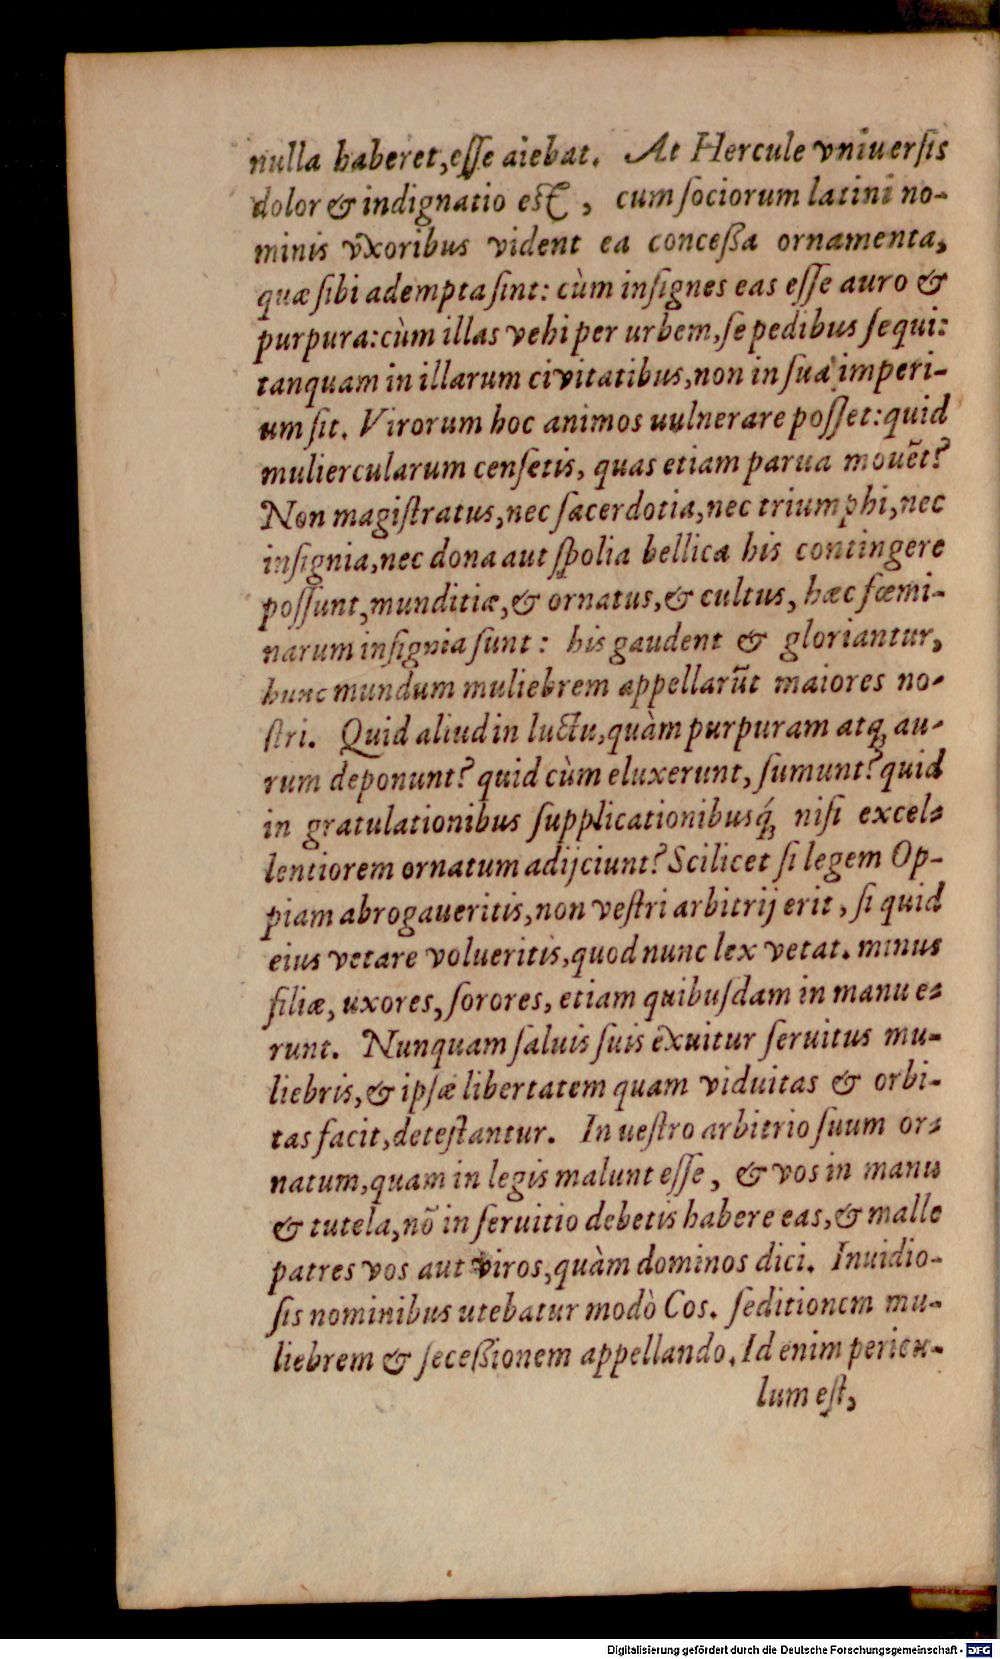 nulla haberet,eſſe aiebat. At Hercule vniuerſis
dolor & indignatio eſt, cum ſociorum latini no-
minis vxoribus vident ea conceßa ornamenta,
quæ ſibi adempta ſint: cùm inſignes eas eſſe auro &
purpura:cùm illas vehi per urbem,ſe pedibus ſequi:
tanquam in illarum civitatibus,non in ſua imperi-
um ſit. Virorum hoc animos uulnerare poſſet:quid
muliercularum cenſetis, quas etiam parua mouẽt?
Non magiſtratus,nec ſacerdotia,nec triumphi,nec
inſignia,nec dona aut ſpolia bellica his contingere
poſſunt,munditiæ,& ornatus,& cultus, hæc fœmi-
narum inſignia ſunt: his gaudent & gloriantur,
hunc mundum muliebrem appellarũt maiores no-
ſtri. Quid aliud in luctu,quàm purpuram atq; au-
rum deponunt? quid cùm eluxerunt, ſumunt? quid
in gratulationibus ſupplicationibusq́; niſi excel-
lentiorem ornatum adijciunt? Scilicet ſi legem Op-
piam abrogaueritis,non veſtri arbitrij erit, ſi quid
eius vetare volueritis,quod nunc lex vetat. minus
filiæ, uxores, ſorores, etiam quibuſdam in manu e-
runt. Nunquam ſaluis ſuis exuitur ſeruitus mu-
liebris,& ipſæ libertatem quam viduitas & orbi-
tas facit,deteſtantur. In ueſtro arbitrio ſuum or-
natum,quam in legis malunt eſſe, & vos in manu
& tutela,nõ in ſeruitio debetis habere eas,& malle
patres vos aut viros,quàm dominos dici. Inuidio-
ſis nominibus utebatur modò Cos. ſeditionem mu-
liebrem & ſeceßionem appellando. Id enim pericu-
lum eſt,
Digitalisierung gefördert durch die Deutsche Forschungsgemeinschaft - DFG